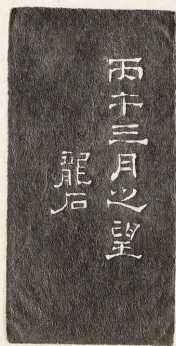 丙午三月之望
龍石